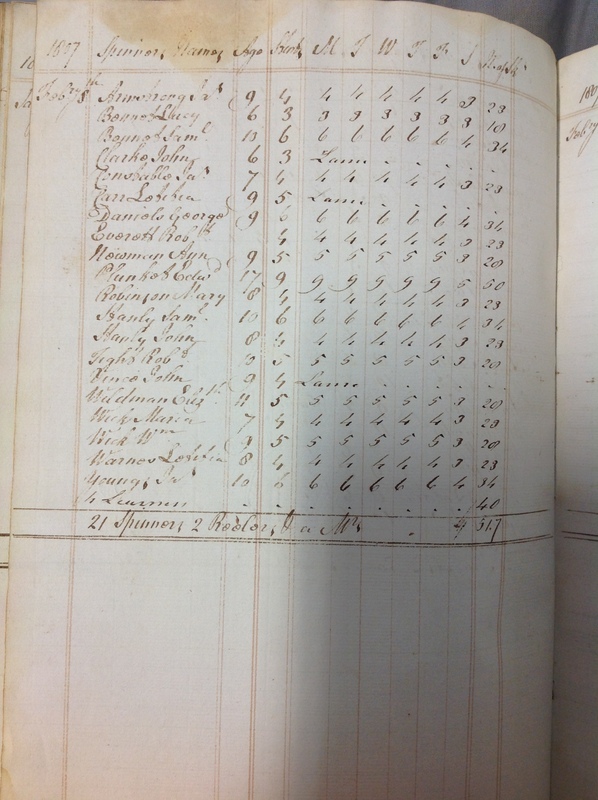 10 1807 Spinners Names Age Stint M T W T F S
Feby 8th Armstrong Jas 9 4 4 4 4 4 4 3 23
Bennet Lucy 6 3 3 3 3 3 3 3 18
Bennet Saml 13 6 6 6 6 6 6 4 34
Clarke John 6 3 Lame
Constable Jas 7 4 4 4 4 4 4 3 23
Carr Letitia 9 5 Lame
Daniels George 9 6 6 6 6 6 6 4 34
Everett Robt 4 4 4 4 4 4 3 23
Newman Ayn 9 5 5 5 5 5 5 3 28
Plunket Edwd 17 9 9 9 9 9 9 5 50
Robinson Mary 8 4 4 4 4 4 4 3 23
Stanly Saml 10 6 6 6 6 6 6 4 34
Stanly John 8 4 4 4 4 4 4 3 23
Tight Robt 10 5 5 5 5 5 5 3 28
Vince John 9 4 Lame
Wildman Elizth 11 5 5 5 5 5 5 3 28
Wick Maria 7 4 4 4 4 4 4 3 23
Wick Wm 9 5 5 5 5 5 5 3 28
Warnes Letitia 8 4 4 4 4 4 4 3 23
Youngs Jas 10 6 6 6 6 6 6 4 34
4 40
21 Spinners 2 Reelers & a Mrs 4 517
180
Feby